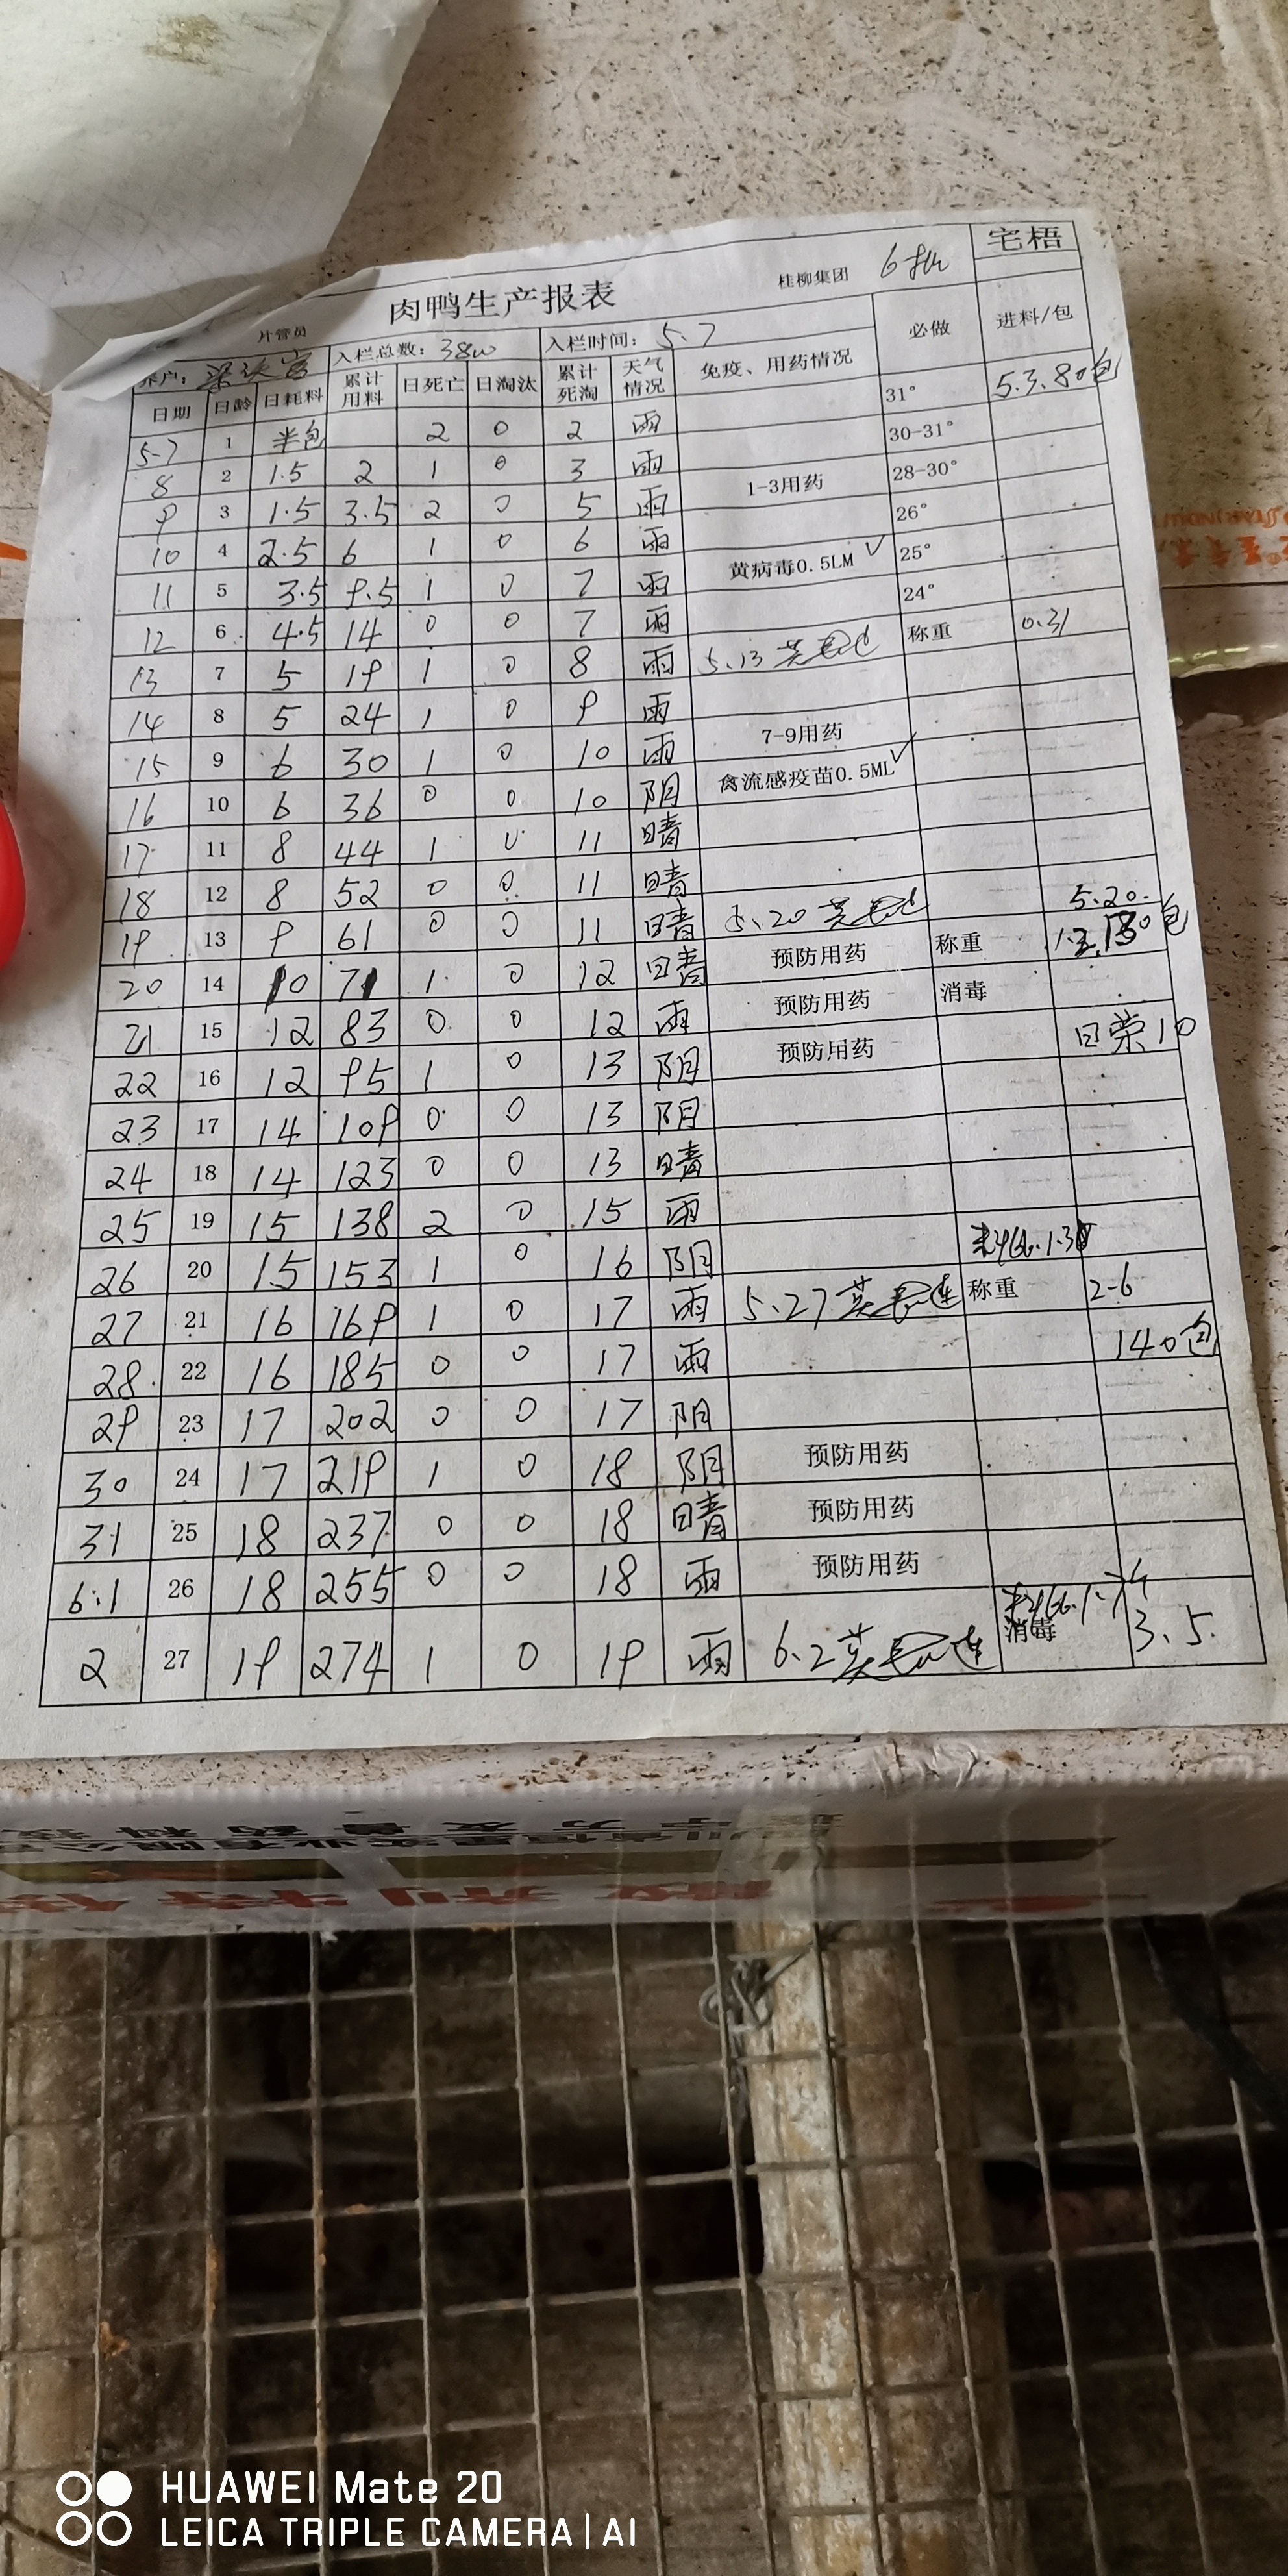 宅梧
肉鸭生产报表
桂柳集团 6批
片管员
养户: 入栏总数: 3800 入栏时间: 5.7
必做 进料/包
日期 日龄 日耗料 累计用料 日死亡 日淘汰 累计死淘 天气情况 免疫、用药情况
5.7 1 半包 2 0 2 雨 31° 5.3.80包
8 2 1.5 2 1 0 3 雨 30-31°
9 3 1.5 3.5 2 0 5 雨 1-3用药 28-30°
10 4 2.5 6 1 0 6 雨 26°
11 5 3.5 9.5 1 0 7 雨 黄病毒0.5LM ✓ 25°
12 6 4.5 14 0 0 7 雨 24°
13 7 5 19 1 0 8 雨 5.13 称重 0.31
14 8 5 24 1 0 9 雨
15 9 6 30 1 0 10 雨 7-9用药
16 10 6 36 0 0 10 阴 禽流感疫苗0.5ML ✓
17 11 8 44 1 0 11 晴
18 12 8 52 0 0 11 晴
19 13 9 61 0 0 11 晴 5.20 5.20.
20 14 10 71 1 0 12 晴 预防用药 称重
21 15 12 83 0 0 12 雨 预防用药 消毒
22 16 12 95 1 0 13 阴 预防用药 日荣10
23 17 14 109 0 0 13 阴
24 18 14 123 0 0 13 晴
25 19 15 138 2 0 15 雨
26 20 15 153 1 0 16 阴
27 21 16 169 1 0 17 雨 5.27 称重 2-6
28 22 16 185 0 0 17 雨 140包
29 23 17 202 0 0 17 阴
30 24 17 219 1 0 18 阴 预防用药
31 25 18 237 0 0 18 晴 预防用药
6.1 26 18 255 0 0 18 雨 预防用药
2 27 19 274 1 0 19 雨 6.2 消毒 3.5.
HUAWEI Mate 20
LEICA TRIPLE CAMERA | AI